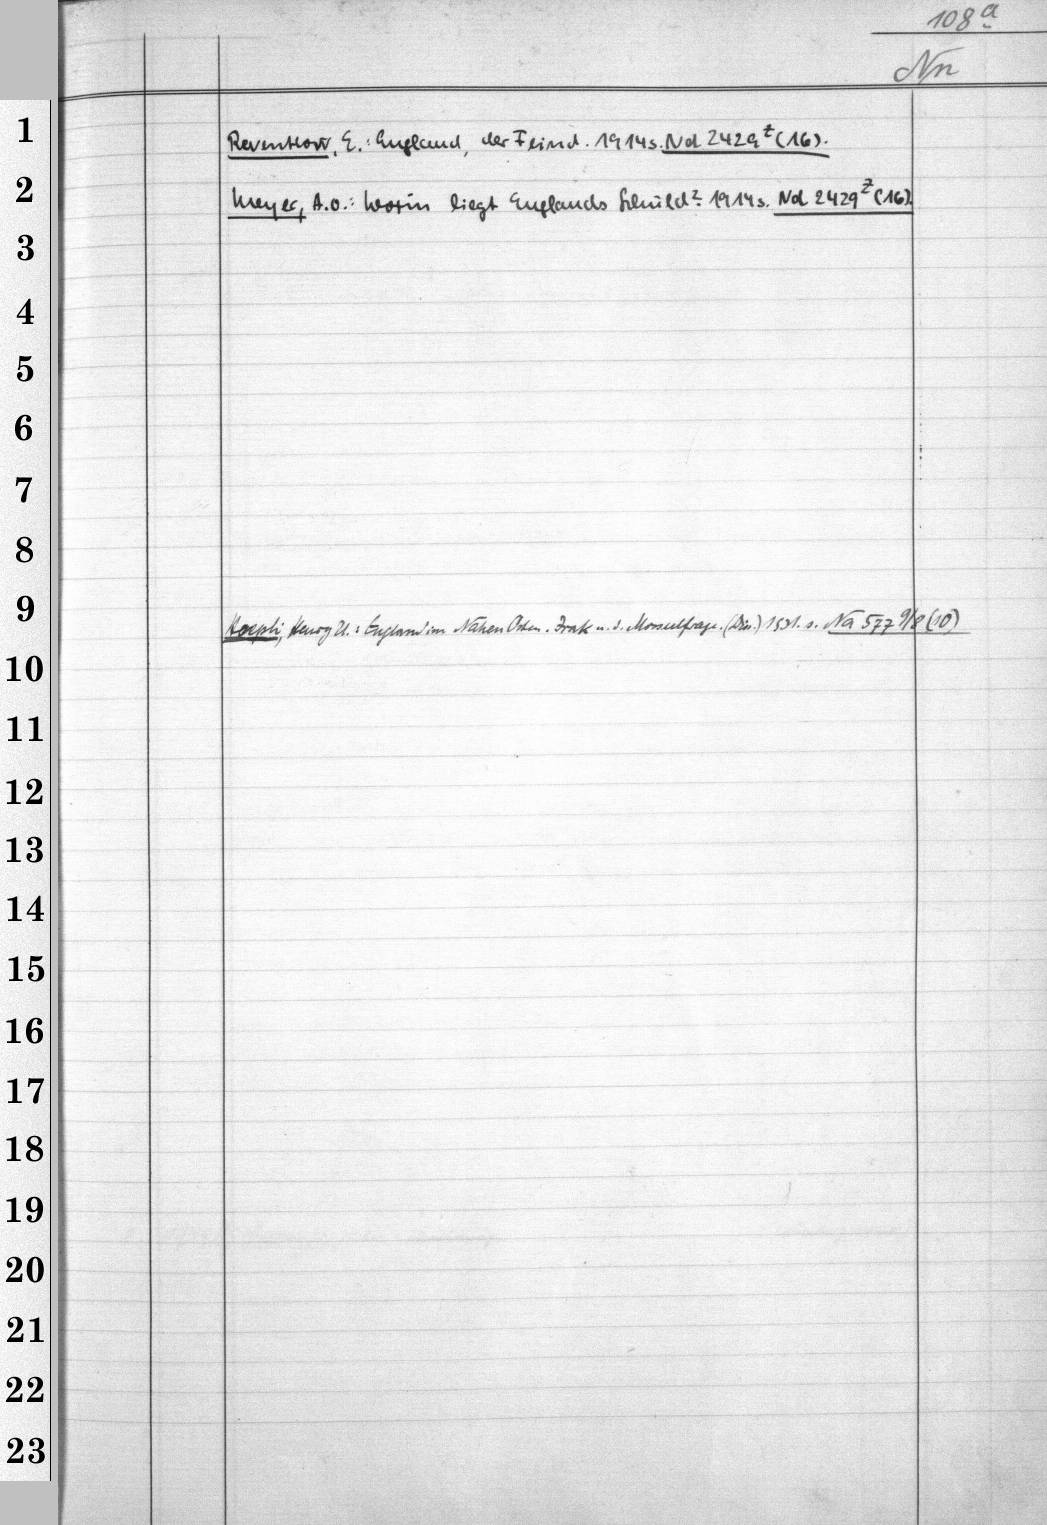 108 a
Nn
1 Reventlow, E.: England, der Feind. 1914 s. Nd 2429 z (16).
2 Meyer, A.O.: Worin liegt Englands Schuld? 1914 s. Nd 2429 z (16).
3
4
5
6
7
8
9 Hoepli, Henry U.: England im Nahen Osten. Irak u. d. Mossulfrage. (Diss.) 1931. s. Na 577 9/8 (10)
10
11
12
13
14
15
16
17
18
19
20
21
22
23